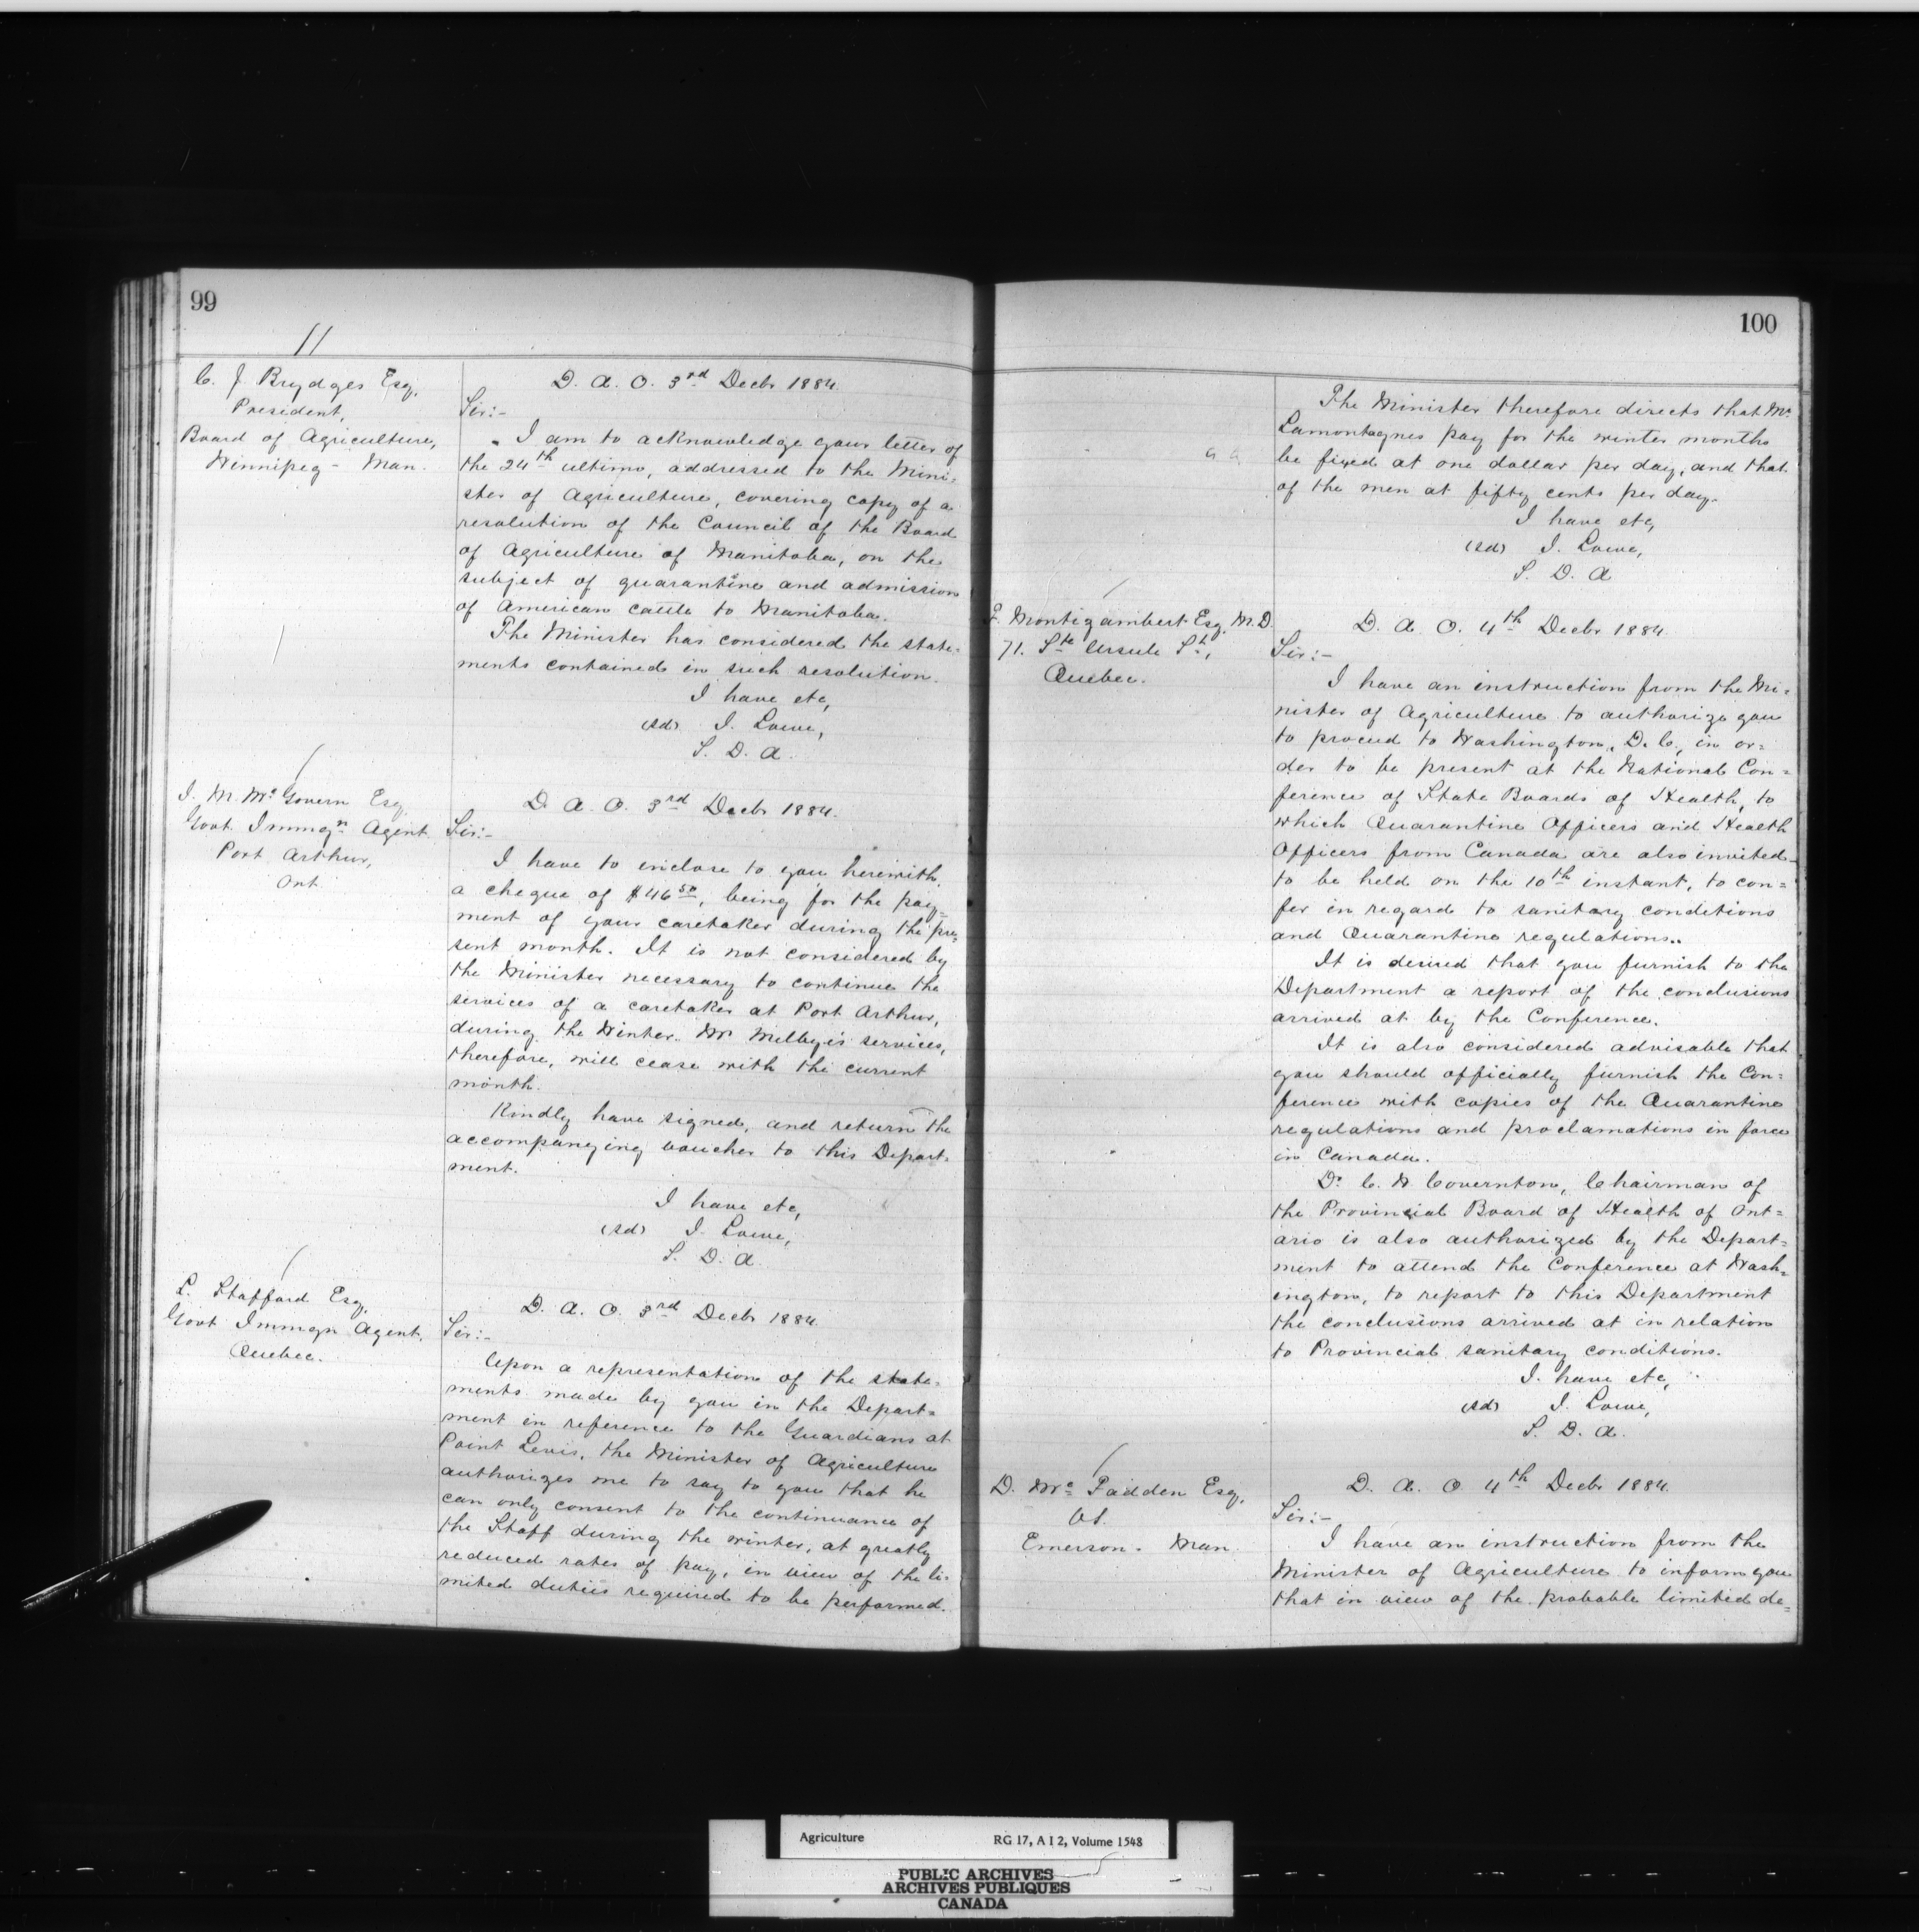 99
C. J. Brydges Esq,
President,
Board of Agriculture,
Winnipeg - Man.
D. A. O. 3rd Decbr 1884.
Sir:-
I am to acknowledge your letter of
the 24th ultimo, addressed to the Mini-
ster of Agriculture, covering copy of a
resolution of the Council of the Board
of Agriculture of Manitoba, on the
subject of quarantine and admission
of American cattle to Manitoba.
The Minister has considered the state-
ments contained in such resolution.
I have etc,
(sd) J. Lowe,
S. D. A.
J. M. McGovern Esq,
Govt. Immgn Agent.
Port Arthur,
Ont.
D. A. O. 3rd Decbr 1884.
Sir:-
I have to inclose to you herewith
a cheque of $46 50, being for the pay-
ment of your caretaker during the pre-
sent month. It is not considered by
the Minister necessary to continue the
services of a caretaker at Port Arthur,
during the Winter. Mr Melby's services,
therefore, will cease with the current
month.
Kindly have signed, and return the
accompanying voucher to this Depart-
ment.
I have etc,
(sd) J. Lowe,
S. D. A.
L. Stafford Esq,
Govt Immgn Agent,
Quebec.
D. A. O. 3rd Decbr 1884.
Sir:-
Upon a representation of the state-
ments made by you in the Depart-
ment in reference to the Guardians at
Point Levis, the Minister of Agriculture
authorizes me to say to you that he
can only consent to the continuance of
the Staff during the winter, at greatly
reduced rates of pay, in view of the li-
mited duties required to be performed.
100
The Minister therefore directs that Mr.
Lamontagnes pay for the winter months
be fixed at one dollar per day, and that
of the men at fifty cents per day.
I have etc,
(sd) J. Lowe,
S. D. A
F. Montigambert Esq, M.D.
71. Ste Ursule St,
Quebec.
D. A. O. 4th Decbr 1884.
Sir:-
I have an instruction from the Mi-
nister of Agriculture to authorize you
to proceed to Washington, D. C., in or-
der to be present at the National Con-
ference of State Boards of Health, to
which Quarantine Officers and Health
Officers from Canada are also invited-
to be held on the 10th instant, to con-
fer in regard to sanitary conditions
and Quarantine regulations..
It is desired that you furnish to the
Department a report of the conclusions
arrived at by the Conference.
It is also considered advisable that
you should officially furnish the Con-
ference with copies of the Quarantine
regulations and proclamations in force
in Canada.
Dr. C. W Covernton, Chairman of
the Provincial Board of Health of Ont-
ario is also authorized by the Depart-
ment to attend the Conference at Wash-
ington, to report to this Department
the conclusions arrived at in relation
to Provincial sanitary conditions.
I have etc,
(sd) J. Lowe,
S. D. A.
D. McFadden Esq,
Emerson. Man.
D. A. O 4th Decbr 1884.
Sir:-
I have an instruction from the
Minister of Agriculture to inform you
that in view of the probable limited de-
Agriculture RG 17, A I 2, Volume 1548
PUBLIC ARCHIVES
ARCHIVES PUBLIQUES
CANADA